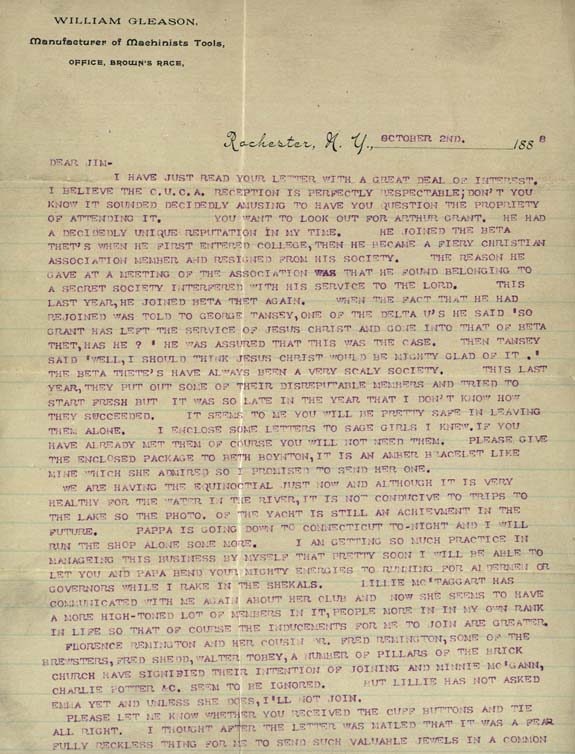 WILLIAM GLEASON,
Manufacturer of Machinists Tools,
OFFICE, BROWN'S RACE,
Rochester, N. Y., OCTOBER 2ND. 1888
DEAR JIM-
I HAVE JUST READ YOUR LETTER WITH A GREAT DEAL OF INTEREST.
I BELIEVE THE C.U.C.A. RECEPTION IS PERFECTLY RESPECTABLE; DON'T YOU
KNOW IT SOUNDED DECIDEDLY AMUSING TO HAVE YOU QUESTION THE PROPRIETY
OF ATTENDING IT. YOU WANT TO LOOK OUT FOR ARTHUR GRANT. HE HAD
A DECIDEDLY UNIQUE REPUTATION IN MY TIME. HE JOINED THE BETA
THET'S WHEN HE FIRST ENTERED COLLEGE, THEN HE BECAME A FIERY CHRISTIAN
ASSOCIATION MEMBER AND RESIGNED FROM HIS SOCIETY. THE REASON HE
GAVE AT A MEETING OF THE ASSOCIATION WAS THAT HE FOUND BELONGING TO
A SECRET SOCIETY INTERFERED WITH HIS SERVICE TO THE LORD. THIS
LAST YEAR, HE JOINED BETA THET AGAIN. WHEN THE FACT THAT HE HAD
REJOINED WAS TOLD TO GEORGE TANSEY, ONE OF THE DELTA U'S HE SAID 'SO
GRANT HAS LEFT THE SERVICE OF JESUS CHRIST AND GONE INTO THAT OF BETA
THET, HAS HE ? ' HE WAS ASSURED THAT THIS WAS THE CASE. THEN TANSEY
SAID 'WELL, I SHOULD THINK JESUS CHRIST WOULD BE MIGHTY GLAD OF IT .'
THE BETA THETE'S HAVE ALWAYS BEEN A VERY SCALY SOCIETY. THIS LAST
YEAR, THEY PUT OUT SOME OF THEIR DISREPUTABLE MEMBERS AND TRIED TO
START FRESH BUT IT WAS SO LATE IN THE YEAR THAT I DON'T KNOW HOW
THEY SUCCEEDED. IT SEEMS TO ME YOU WILL BE PRETTY SAFE IN LEAVING
THEM ALONE. I ENCLOSE SOME LETTERS TO SAGE GIRLS I KNEW. IF YOU
HAVE ALREADY MET THEM OF COURSE YOU WILL NOT NEED THEM. PLEASE GIVE
THE ENCLOSED PACKAGE TO BETH BOYNTON, IT IS AN AMBER BRACELET LIKE
MINE WHICH SHE ADMIRED SO I PROMISED TO SEND HER ONE.
WE ARE HAVING THE EQUINOCTIAL JUST NOW AND ALTHOUGH IT IS VERY
HEALTHY FOR THE WATER IN THE RIVER, IT IS NOT CONDUCIVE TO TRIPS TO
THE LAKE SO THE PHOTO. OF THE YACHT IS STILL AN ACHIEVMENT IN THE
FUTURE. PAPPA IS GOING DOWN TO CONNECTICUT TO-NIGHT AND I WILL
RUN THE SHOP ALONE SOME MORE. I AM GETTING SO MUCH PRACTICE IN
MANAGEING THIS BUSINESS BY MYSELF THAT PRETTY SOON I WILL BE ABLE TO
LET YOU AND PAPA BEND YOUR MIGHTY ENERGIES TO RUNNING FOR ALDERMEN OR
GOVERNORS WHILE I RAKE IN THE SHEKALS. LILLIE MC'TAGGART HAS
COMMUNICATED WITH ME AGAIN ABOUT HER CLUB AND NOW SHE SEEMS TO HAVE
A MORE HIGH-TONED LOT OF MEMBERS IN IT, PEOPLE MORE IN IN MY OWN RANK
IN LIFE SO THAT OF COURSE THE INDUCEMENTS FOR ME TO JOIN ARE GREATER.
FLORENCE REMINGTON AND HER COUSIN DR. FRED REMINGTON, SOME OF THE
BREWSTERS, FRED SHEDD, WALTER TOBEY, A NUMBER OF PILLARS OF THE BRICK
CHURCH HAVE SIGNIDIED THEIR INTENTION OF JOINING AND MINNIE MC'GANN,
CHARLIE POTTER &C. SEEM TO BE IGNORED. BUT LILLIE HAS NOT ASKED
EMMA YET AND UNLESS SHE DOES, I'LL NOT JOIN.
PLEASE LET ME KNOW WHETHER YOU RECEIVED THE CUFF BUTTONS AND TIE
ALL RIGHT. I THOUGHT AFTER THE LETTER WAS MAILED THAT IT WAS A FEAR
FULLY RECKLESS THING FOR ME TO SEND SUCH VALUABLE JEWELS IN A COMMON